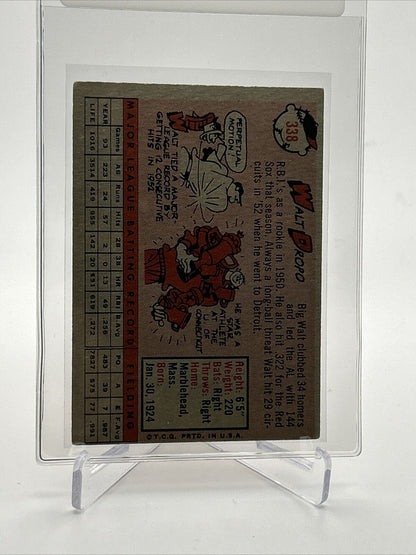 338
WALT DROPO
Big Walt clubbed 34 homers
and led the AL with 144
R.B.I.'s as a rookie in 1950. He also hit .322 for the Red
Sox that season. Always a longball threat Walt hit 29 cir-
cuits in '52 when he went to Detroit.
PERPETUAL
MOTION!
WALT TIED A MAJOR
LEAGUE RECORD BY
GETTING 12 CONSECUTIVE
HITS IN 1952
HE WAS A
STAR
ATHLETE
AT THE
U. OF
CONNECTICUT
Height: 6'5"
Weight: 220
Bats: Right
Throws: Right
Home:
Marblehead,
Mass.
Born:
Jan 30, 1924
©T.C.G. PRTD. IN U.S.A.
MAJOR LEAGUE BATTING RECORD FIELDING
Games AB Runs Hits 2B 3B HR RBI B.Avg PO A E F.Avg
YEAR 93 223 24 57 2 0 13 49 .256 39 7 .987
LIFE 1016 3514 419 955 142 20 .272 7837 575 77 .991